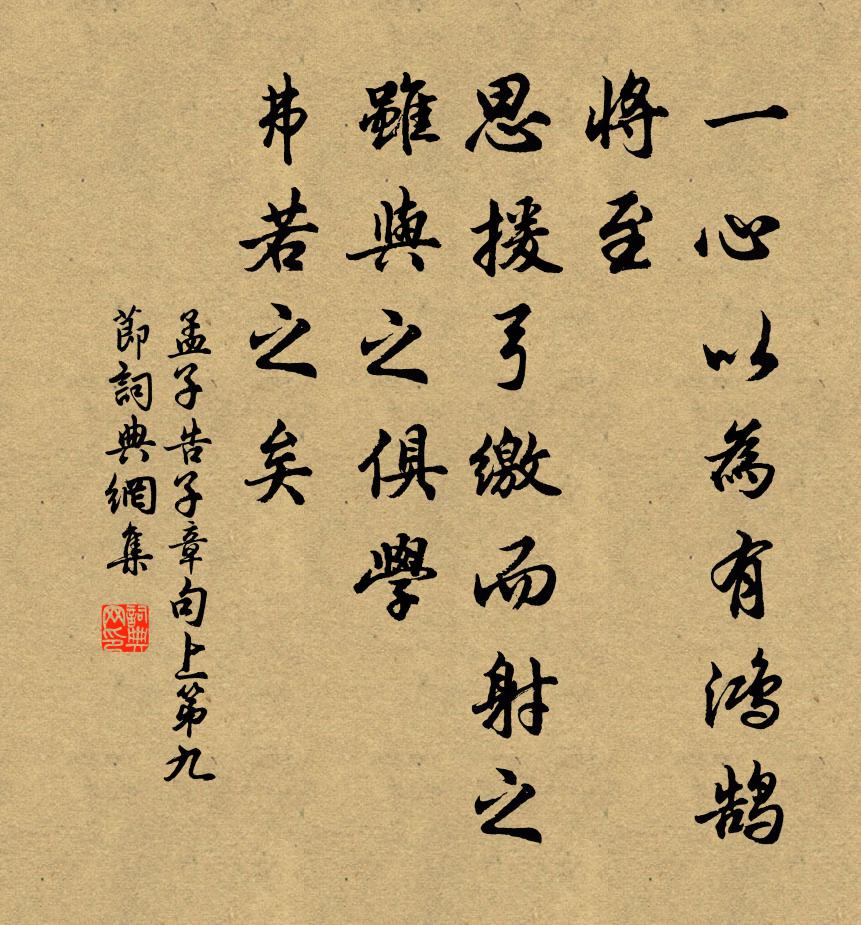 一心以為有鴻鹄
將至
思援弓繳而射之
雖與之俱學
弗若之矣
孟子告子章句上第九
節詞典網集
詞典
网印